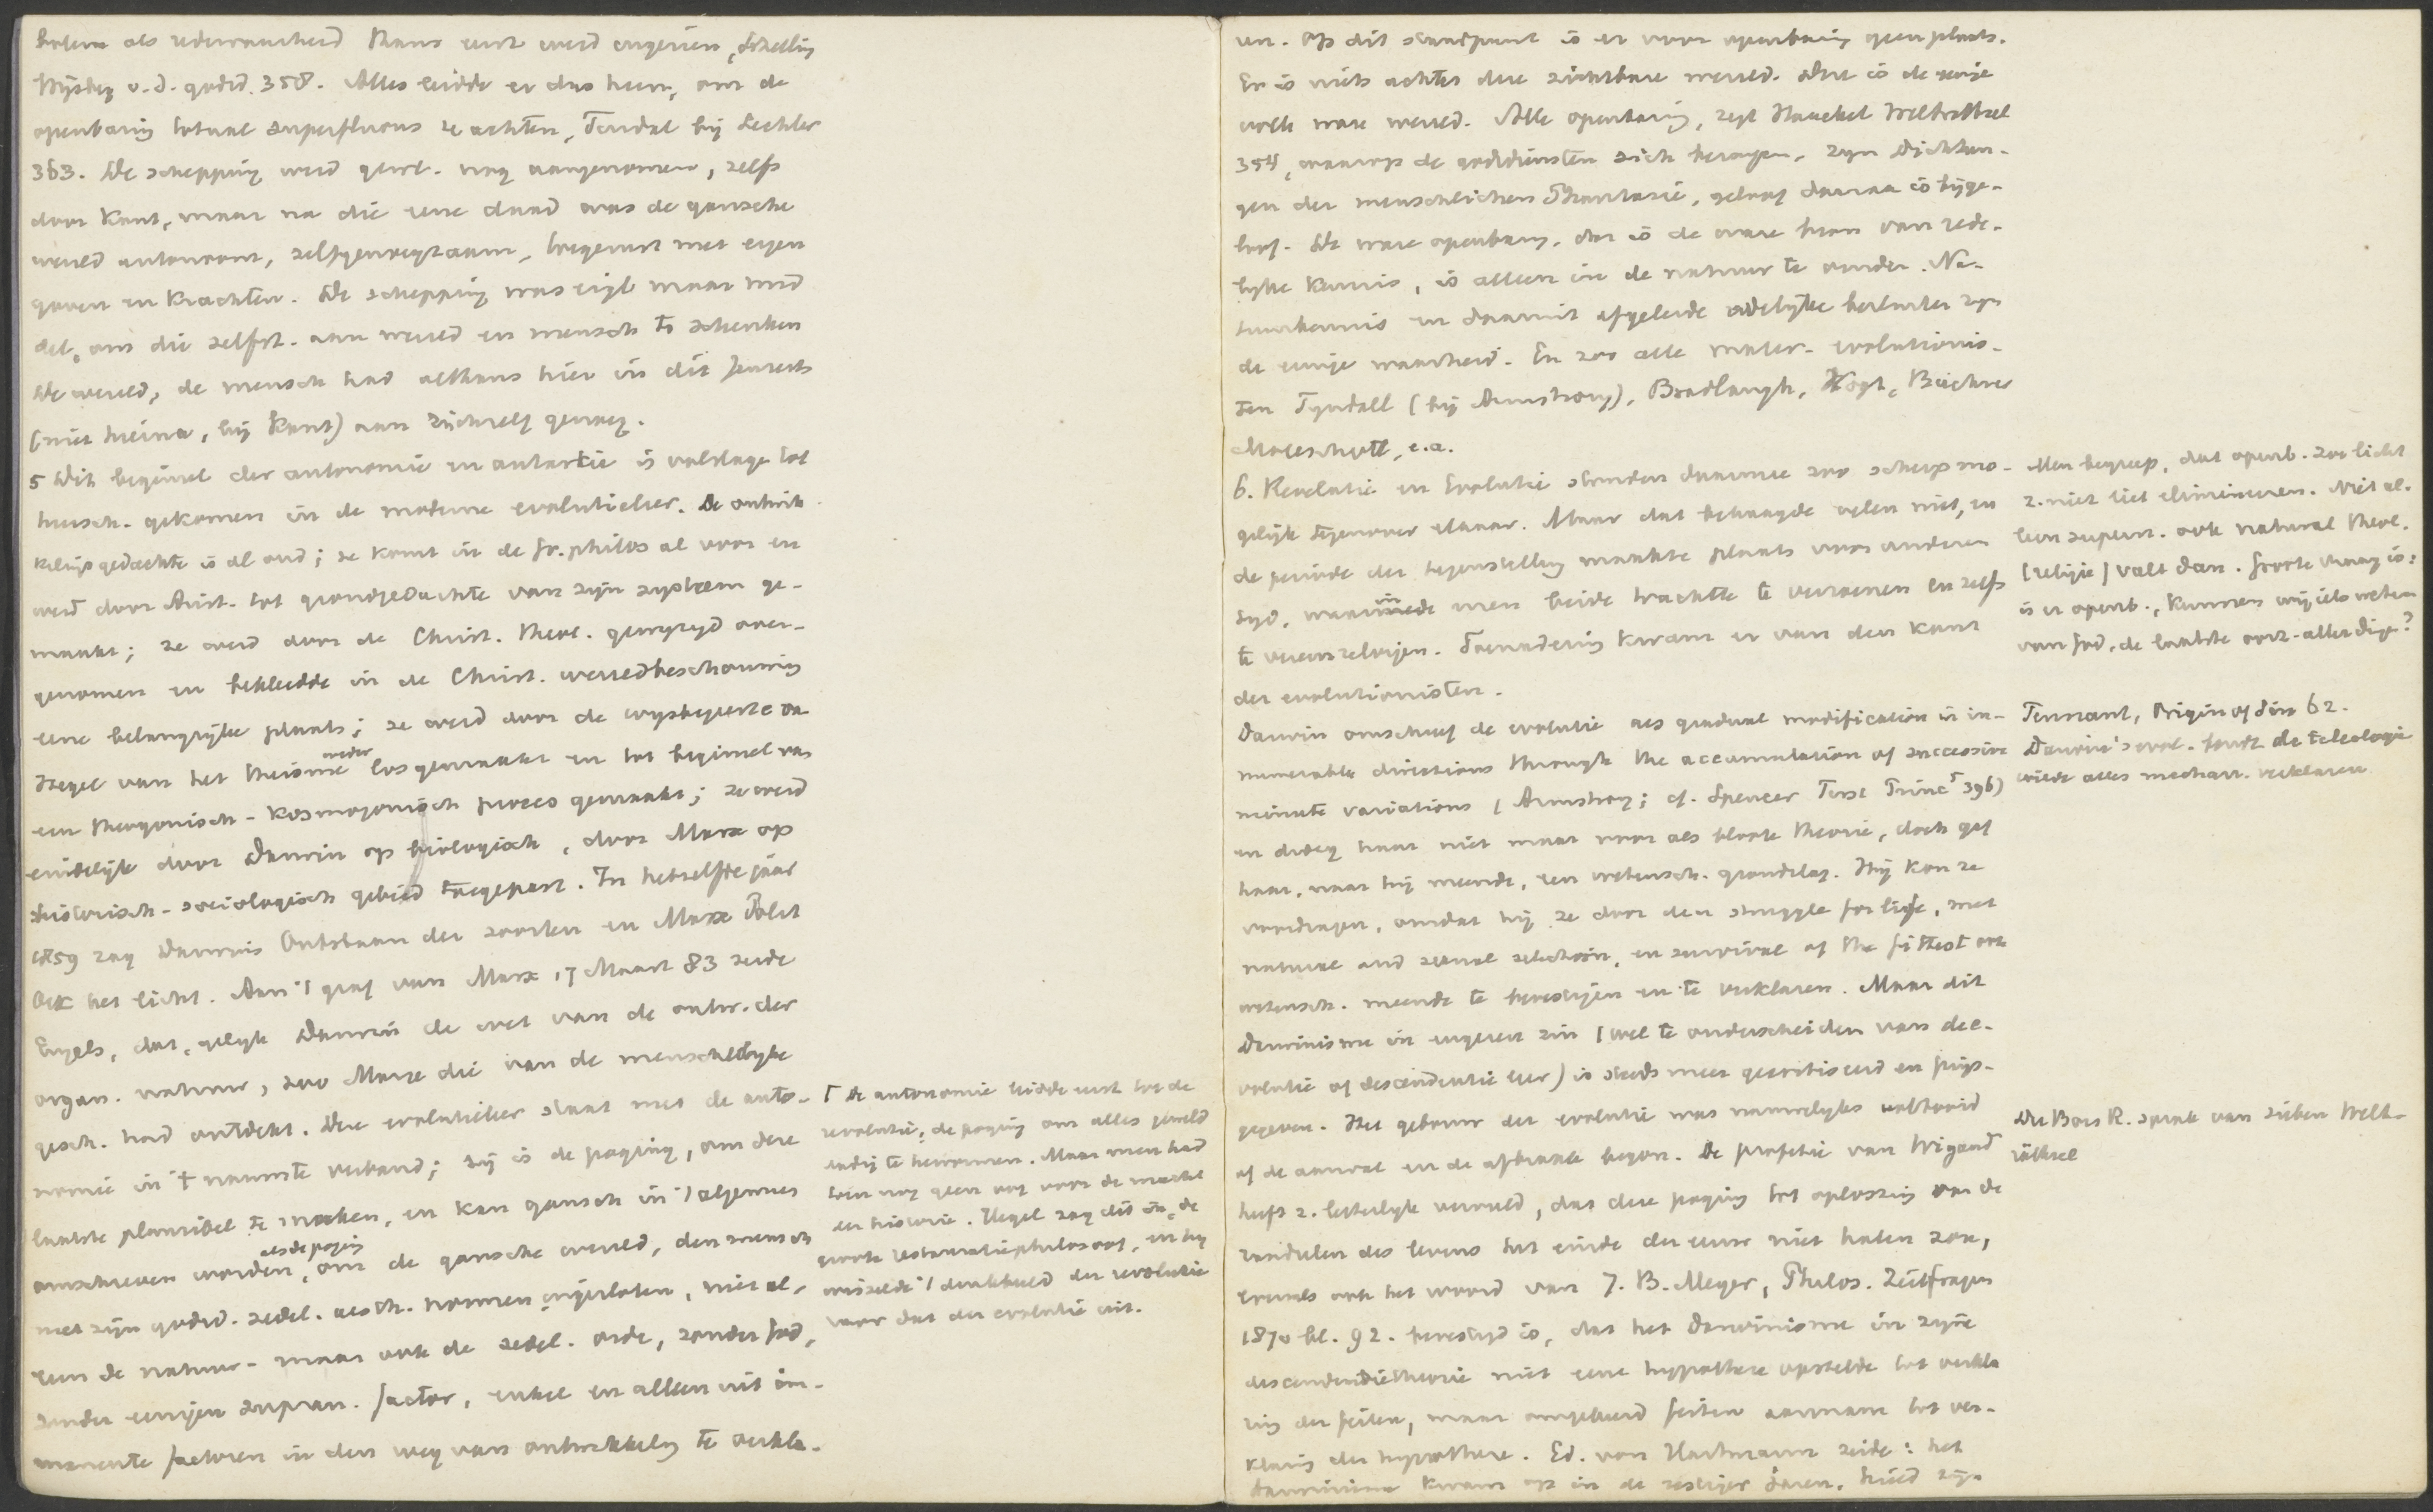 als redewaarheid thans eerst werd ingezien, Schelling
v. d. godsd. 358. Alles leidde er dus heen, om de
openbaring totaal superfluous te achten, Tindal bij Lechler
363. De schepping werd gew. nog aangenomen, zelfs
door Kant, maar na die eene daad was de gansche
wereld autonoom, zelfgenoegzaam, toegerust met eigen
gaven en krachten. De schepping was eigl maar mid
del, om die zelfst. aan wereld en mensch te schenken
De wereld, de mensch had althans hier in dit Jenseits
(niet hierna, bij Kant) aan zichzelf genoeg.
5 Dit beginsel der autonomie en autarkie is volslage tot
heersch. gekomen in de moderne evolutieleer. De ontwik
kelingsgedachte is al oud; ze komt in de Gr. philos al voor en
werd door Arist. tot grondgedachte van zijn systeem ge-
maakt; ze werd door de Christ. theol. gewyzigd over-
genomen en bekleedde in de Christ. wereldbeschouwing
eene belangrijke plaats; ze werd door de wijsbegeerte van
Hegel van het theisme weder losgemaakt en tot beginsel van
een theogonisch-kosmogonisch proces gemaakt; ze werd
eindelijk door Darwin op biologisch, door Marx op
historisch-sociologisch gebied toegepast. In hetzelfde jaar
1859 zag Darwins Ontstaan der soorten en Marx Polit
Oek het licht. Aan 't graf van Marx 17 Maart 83 zeide
Engels, dat, gelyk Darwin de wet van de ontw. der
organ. natuur, zoo Marx die van de menschelyke
gesch. had ontdekt. Deze evolutieleer staat met de auto-
nomie in 't nauwste verband; zij is de poging, om deze
laatste plausibel te maken, en kan gansch in 't algemeen
omschreven worden, als de poging om de gansche wereld, den mensch
met zijn godsd. zedel. aesth. normen ingesloten, niet al-
leen de natuur- maar ook de zedel. orde, zonder God,
zonder eenigen supran. factor, enkel en alleen uit im-
manente factoren in den weg van ontwikkeling te verkla-
Γ De autonomie leidde eerst tot de
revolutie; de poging om alles
te hervormen. Maar men had
toen nog geen oog voor de macht
der historie. Hegel zag dit in, de
groote restauratiephilosoof, en hij
wisselde 't denkbeeld der revolutie
voor dat der evolutie uit.
ren. Op dit standpunt is er voor openbaring geen plaats.
Er is niets achter deze zichtbare wereld. Deze is de eenige
volle ware wereld. Alle openbaring, zegt Haeckel Welträthsel
354, waarop de godsdiensten zich beroepen, zyn Dichtun-
gen der menschlichen Phantasie, geloof daaraan is bijge-
loof. De ware openbaring, dat is de ware bron van rede-
lyke kennis, is alleen in de natuur te vinden. Na-
tuurkennis en daaruit afgeleide redelijke besluiten zyn
de eenige waarheid. En zoo alle mater. evolutionis-
ten Tyndall (bij Armstrong), Bradlaugh, Vogt, Büchner
Moleschott, e.a.
6. Revelatie en Evolutie stonden daarmee zoo scherp mo-
gelijk tegenover elkaar. Maar dat behaagde velen niet, en
de periode der tegenstelling maakte plaats voor anderen
tijd, waarin men beide trachtte te verzoenen en zelfs
te vereenzelvigen. Toenadering kwam er van den kant
der evolutionisten.
Darwin omschreef de evolutie als gradual modification in in-
numerable directions through the accumulation of successive
minute variations (Armstrong; cf. Spencer First Princ 396)
en droeg haar niet maar voor als bloote theorie, doch gaf
haar, naar hij meende, een wetensch. grondslag. Hij kon ze
voordragen, omdat hij ze door den struggle for life, met
natural and sexual selection, en survival of the fittest ook
wetensch. meende te bevestigen en te verklaren. Maar dit
Darwinisme in engeren zin (wel te onderscheiden van de e-
volutie of descendentie leer) is steeds meer gecritiseerd en prijs-
gegeven. Het gebouw der evolutie was nauwelyks voltooid
of de aanval en de afbraak begon. De profetie van Wigand
heeft z. letterlyk vervuld, dat deze poging tot oplossing van de
raadselen des levens het einde der eeuw niet halen zou,
evenals ook het woord van J. B. Meyer, Philos. Zeitfragen
1870 bl. 92. bevestigd is, dat het Darwinisme in zijne
descendentietheorie niet eene hypothese opstelde tot verkla
ring der feiten, maar omgekeerd feiten aannam tot ver-
klaring der hypothese. Ed. von Hartmann zeide: het
Darwinisme kwam op in de zestiger jaren, hield zijn
Men begreep, dat openb. zoo licht
z. niet liet elimineeren. Niet al-
leen supern. ook natural theol.
(religie) valt dan. Groote vraag is:
is er openb., kunnen wij iets weten
van God, de laatste oorz. aller dinge?
Tennant, Origin of Sin 62.
Darwin's evol. teleologie
wilde alles mechan. verklaren
Du Bois R. sprak van sieben Welt-
räthsel